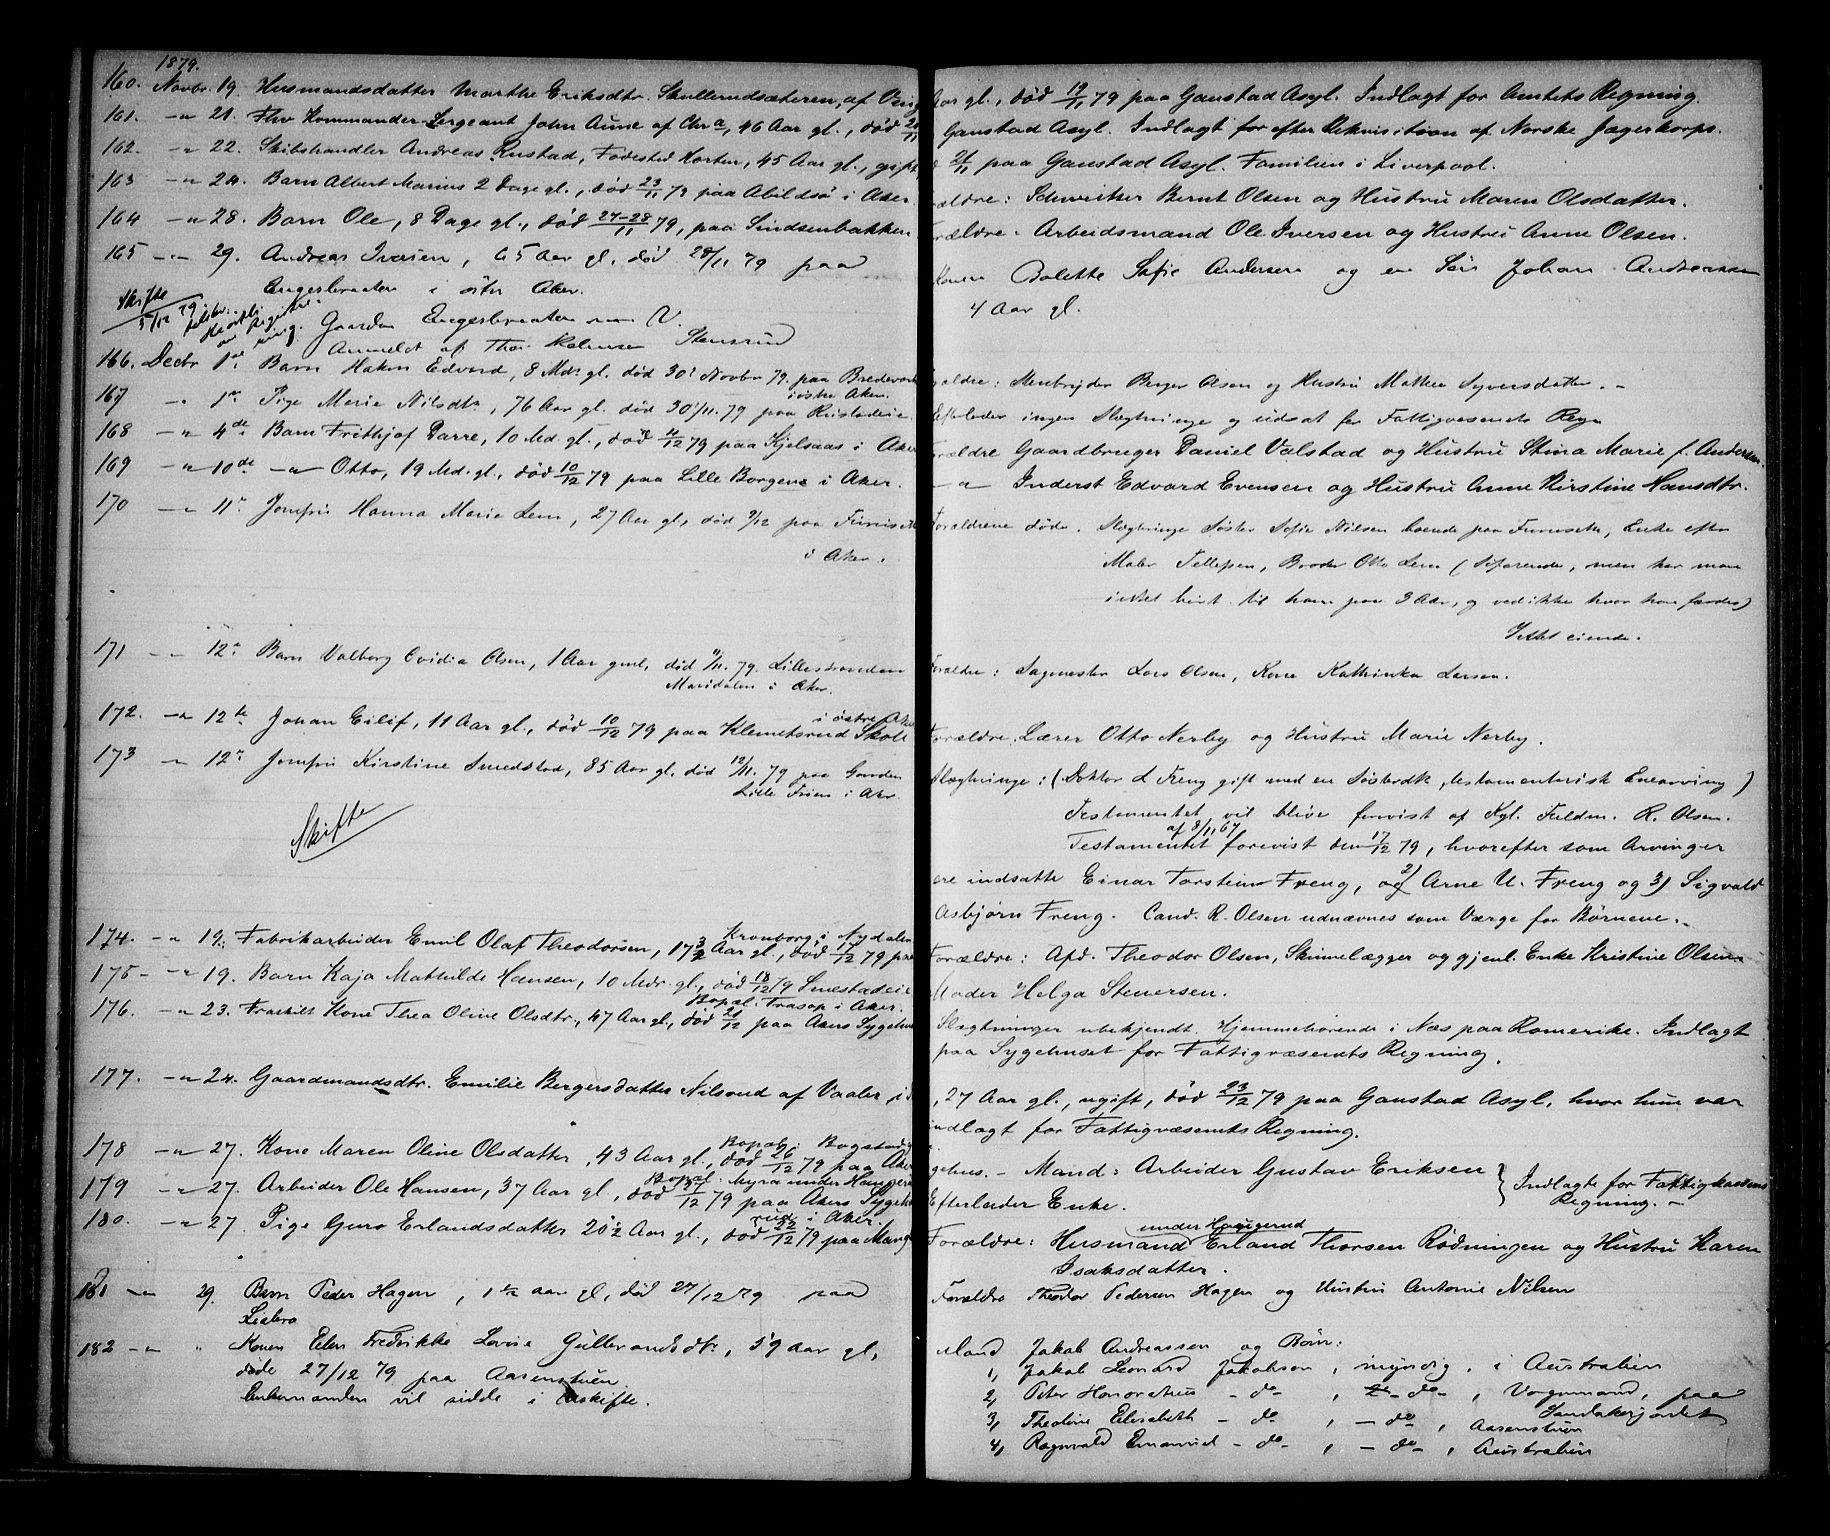 1879.
160. Novbr. 19. Husmandsdatter Marthe Eriksdtr. Skullerudsæteren, af
161. -"- 21. Fhv Kommander-Sergeant John Aune af Chra, 46 Aar gl., død
162. -"- 22. Skibshandler Andreas Rustad, Fødested Horten, 45 Aar gl., gift,
163 -"- 24. Barn Albert Marius 2 Dage gl., død 23/11 79 paa Abildsø i Aker
164 -"- 28. Barn Ole, 8 Dage gl., død 27-28/11 79, paa Sindsenbakken
165 -"- 29. Andreas Iversen, 65 Aar gl. død 28/11 79 paa
Engerbraaten i östre Aker.
Skifte
5/12 79
Gaarden Engerbraaten
Anmeldt af Thor Stensrud
166. Decbr 1ste Barn Hakon Edvard, 8 Mdr gl. død 30' Novbr 79. paa
i østre Aker.
167 -"- 1ste Pige Marie Nilsdtr, 76 Aar gl. død 30/11. 79 paa
168 -"- 4de Barn Frithjof Darre, 10 Md. gl., død 4/12 79 paa Kjelsaas i Aker
169 -"- 10de -"- Otto, 19 Md. gl., død 10/12 79 paa Lille Borgen i Aker.
170 -"- 11te Jomfru Hanna Marie Lem, 27 Aar gl, død 9/12 paa
i Aker.
171 -"- 12te Barn Valborg Ovidia Olsen, 1 Aar gml, død 11/11. 79.
Maridalen i Aker.
i østre Aker
172. -"- 12te Johan Eilif, 11 Aar gl., død 10/12 79 paa Klemetsrud Skole
173 -"- 12te Jomfru Kirstine Smedstad, 85 Aar gl, død 12/11. 79 paa Gaarden
Lille Frøen i Aker.
Skifte
Kronborg i Nydalen
174. -"- 19. Fabrikarbeider Emil Olaf Theodorsen, 17 Aar gl., død 17/12 79 paa
175 -"- 19. Barn Kaja Mathilde Hansen, 10 Mdr. gl., død 18/12 79
Bopæl: Trasop i Aker.
176. -"- 23. Fraskilt Kone Thea Oline Olsdtr, 47 Aar gl., død 21/12 paa Akers Sygehus
177. -"- 24. Gaardmandsdtr. Emilie Bergersdatter Nilsrud af Vaaler i
Bopæl: Bogstad
178 -"- 27. Kone Maren Oline Olsdatter, 43 Aar gl., død 26/12 79 paa Aker
Bopæl: Myra under
179 -"- 27. Arbeider Ole Hansen, 37 Aar gl, død 27/12 79 paa Akers Sygehus
rud i Aker.
180. -"- 27. Pige Guro Erlandsdatter 20½ Aar gl., død 22/12 79 paa
181 -"- 29. Barn Peder Hagen, 1½ aar gl, död 27/12 79 paa
Ljabro
182 -"- " Konen Elen Fredrikke Lovise Gulbrandsdtr, 59 aar gl,
döde 27/12 79 paa Aasenstuen.
Enkemanden vil sidde i Uskifte.
Aar gl., død 19/11 79 paa Gaustad Asyl. Indlagt for Amtets Regning.
Gaustad Asyl. Indlagt for efter Rekvisition af Norske Jægerkorps.
21/11 paa Gaustad Asyl. Familien i Liverpool.
Forældre: Schweitser Bernt Olsen og Hustru Maren Olsdatter.
Forældre. Arbeidsmand Ole Iversen og Hustru Anne Olsen.
Konen Bolette Sofie Andersen og en Sön Johan Andreassen
4 Aar gl.
Forældre: Stenbryder Berger Olsen og Hustru Mathea Syversdatter. -
Efterlader ingen Slægtninge og udsat for Fattigvæsenets Regn
Forældre Gaardbruger Daniel Valstad og Hustru Stina Marie f. Andersen.
-"- Inderst Edvard Evensen og Hustru Anne Kirstine Hansdtr.
Forældrene døde. Slægtninge Søster Sofie Nilsen boende paa Furuseth, Enke efter
Maler Tellefsen, Broder Otto Lem (Søfarende, men har man
intet hørt til ham paa 3 Aar, og ved ikke hvor han færdes)
Intet eiende.
Forældre: Sagmester Lars Olsen, Kone Kathrinka Larsen.
Forældre. Lærer Otto Nerby og Hustru Marie Nerby.
Slægtninge: (Doktor L Freng gift med en Søsterdtr, testamentarisk Enearving)
Testamentet vil blive forevist af Kgl. Fuldm. R. Olsen.
af 8/11 67
Testamentet forevist den 17/12 79, hvorefter som Arvinger
ere indsatte Einar Torstein Freng, og 2) Arne U. Freng og 3) Sigvald
Asbjørn Freng. Cand. R. Olsen udnævnes som Værge for Børnene.
Forældre: Afd. Theodor Olsen, Skinnelægger og gjenl. Enke Kristine Olsen
Moder Helga Stenersen.
Slægtninger ubekjendt. Hjemmehørende i Næs paa Romerike. Indlagt
paa Sygehuset for Fattigvæsenets Regning.
, 27 Aar gl., ugift, død 23/12 79 paa Gaustad Asyl, hvor hun var
indlagt for Fattigvæsenets Regning.
Sygehus. - Mand: Arbeider Gustav Eriksen
Efterlader Enke.
} Indlagte for Fattigkassens
Regning. -
under Haugerud
Forældre: Husmand Erland Thorsen Rødningen og Hustru Karen
Isaksdatter.
Forældre Theodor Pedersen Hagen og Hustru Antonie Nilsen
Mand Jakob Andreassen og Börn:
1, Jakob Leonard Jakobsen, myndig, i Australien
2, Peter Honoratius - do - , - do - , Vognmand, paa
Sandakerjordet
3, Theoline Elisabeth - do , - do , Aasenstuen
4, Ragnvald Emanuel - do - , - do - , Australien